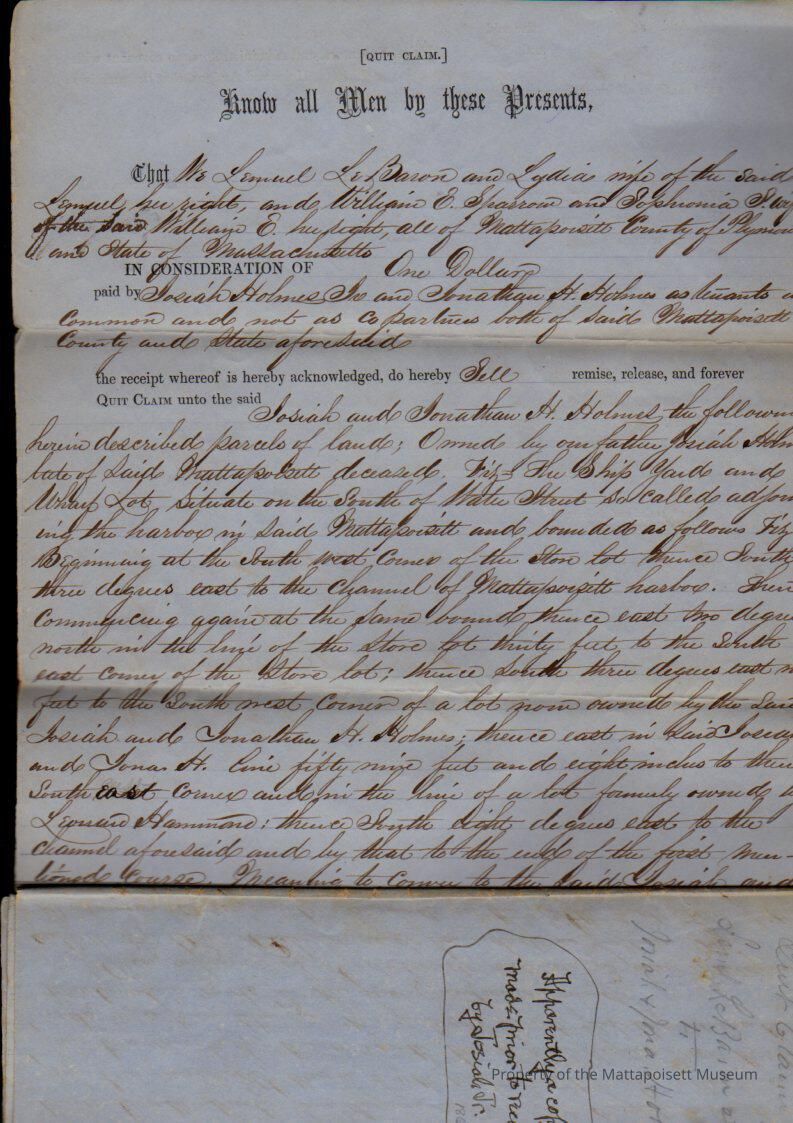 [QUIT CLAIM.]
Know all Men by these Presents,
That We Lemuel LeBaron and Lydia wife of the said
Lemuel, her right, and William E. Sparrow and Sophronia
of the said William E. her right, all of Mattapoisett County of
and State of Massachusetts
IN CONSIDERATION OF One Dollar
paid by Josiah Holmes Jr and Jonathan H. Holmes as tenants
common and not as copartners both of said Mattapoisett
County and State aforesaid
the receipt whereof is hereby acknowledged, do hereby Sell remise, release, and forever
QUIT CLAIM unto the said
Josiah and Jonathan H. Holmes, the
herein described parcels of land; Owned by our father Josiah
late of said Mattapoisett deceased. Viz- The Ship Yard and
Wharf Lot situate on the South of Water Street so called
ing the harbor in said Mattapoisett and bounded as follows Viz
Beginning at the South west Corner of the Store lot thence South
three degrees east to the channel of Mattapoisett harbor. Then
Commencing again at the same bound, thence east two
north in the line of the Store lot thirty feet to the South
east corner of the Store lot; thence South three degrees east
feet to the South west Corner of a lot now owned by the
Josiah and Jonathan H. Holmes; thence east in said
and Jona. H. line fifty nine feet and eight inches to
South east corner and in the line of a lot formerly owned
Leonard Hammond: thence South eight degrees east to the
channel aforesaid and by that to the end of the first men-
tioned Course. Meaning to Convey to the said Josiah and
Apparently a
made prior to
by Josiah Jr.
Josiah & Jona
Property of the Mattapoisett Museum